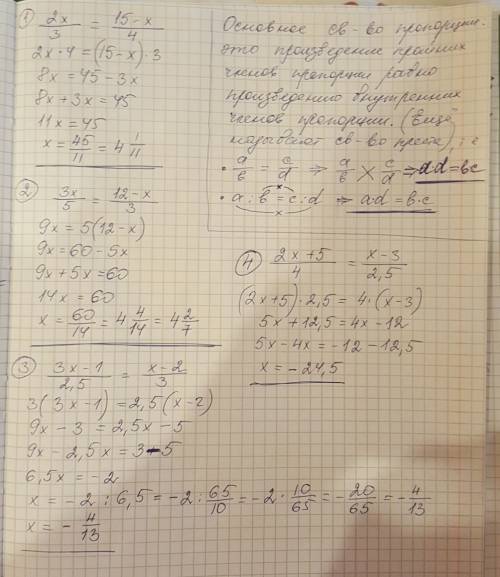 1) 2x/3 = 15-x/4
2x·4 = (15-x)·3
8x = 45-3x
8x+3x = 45
11x = 45
x = 45/11 = 4 1/11
2) 3x/5 = 12-x/3
9x = 5(12-x)
9x = 60-5x
9x+5x = 60
14x = 60
x = 60/14 = 4 4/14 = 4 2/7
3) 3x-1/2,5 = x-2/3
3(3x-1) = 2,5(x-2)
9x-3 = 2,5x-5
9x-2,5x = 3-5
6,5x = -2
x = -2 : 6,5 = -2 : 65/10 = -2 · 10/65 = -20/65 = -4/13
x = -4/13
Основное св-во пропорции.
это произведение крайних
членов пропорции равно
произведению внутренних
членов пропорции. (Ещё
называют св-во креста), т.е
• a/b = c/d ⇒ a/b × c/d ⇒ ad=bc
• a : b = c : d ⇒ a·d = b·c
4) 2x+5/4 = x-3/2,5
(2x+5)·2,5 = 4·(x-3)
5x+12,5 = 4x-12
5x-4x = -12-12,5
x = -24,5